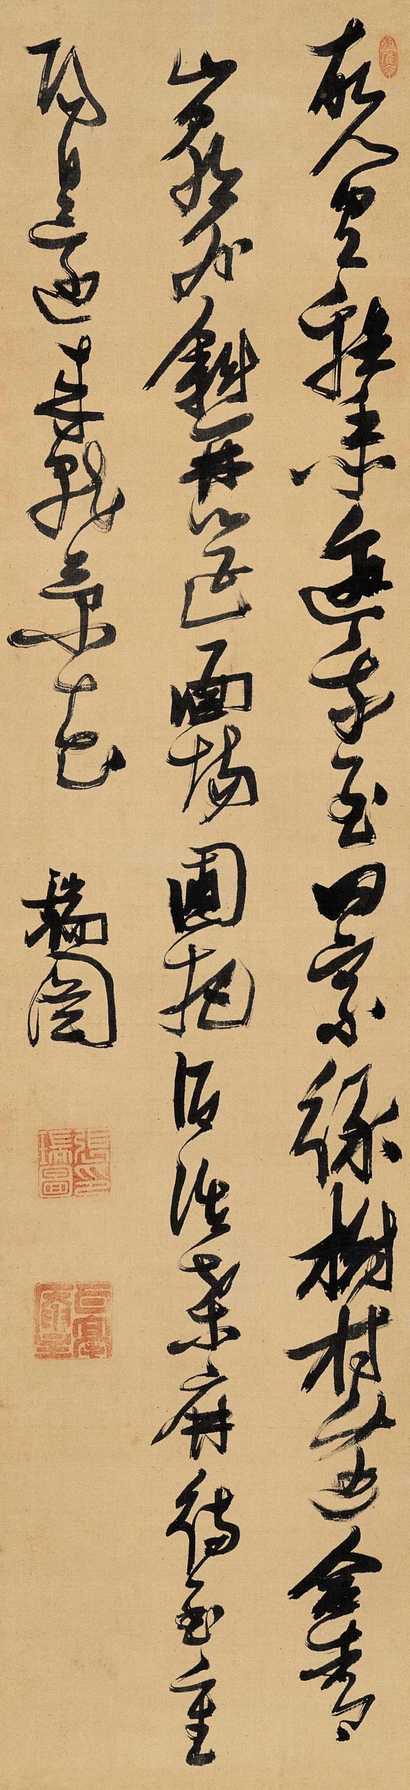 故人具雞黍邀我至田家綠樹村邊合青
山郭外斜開筵面場圃把酒話桑麻待至重
陽日還來就菊花
瑞圖
張瑞圖印